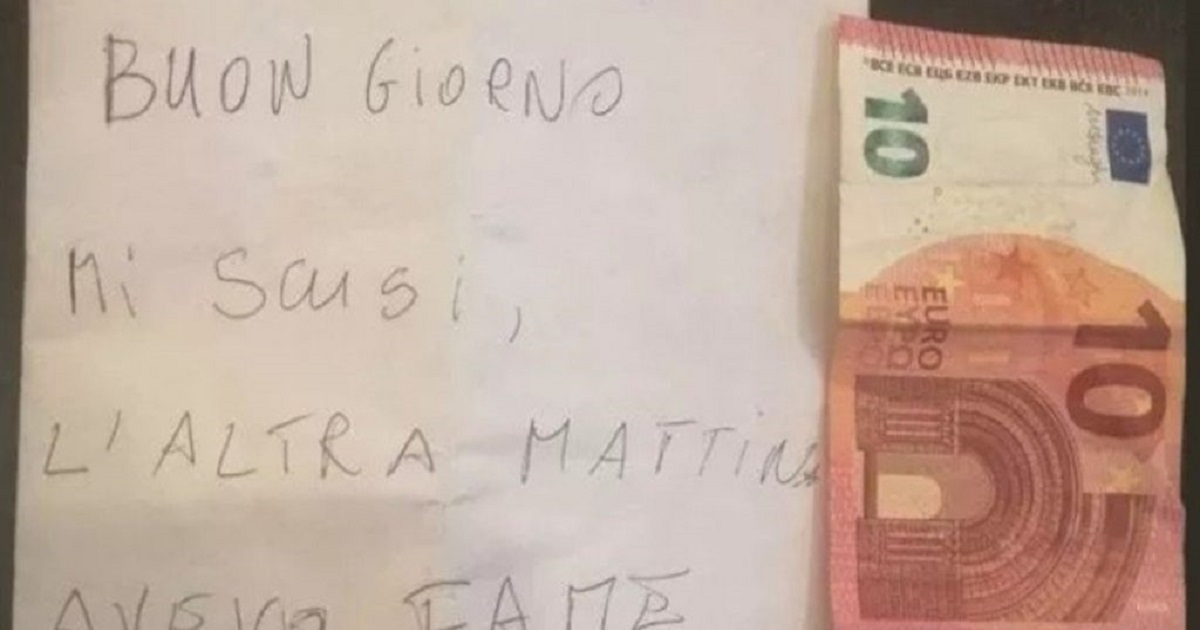 BUON GIORNO
Mi Scusi,
L'ALTRA MATTINA
AVEVO FAME
BCE ECB ЕЦБ EZB EKP EKT EKB BĊE EBC 2014
10
10
EURO
ΕΥΡΩ
ЕВРО